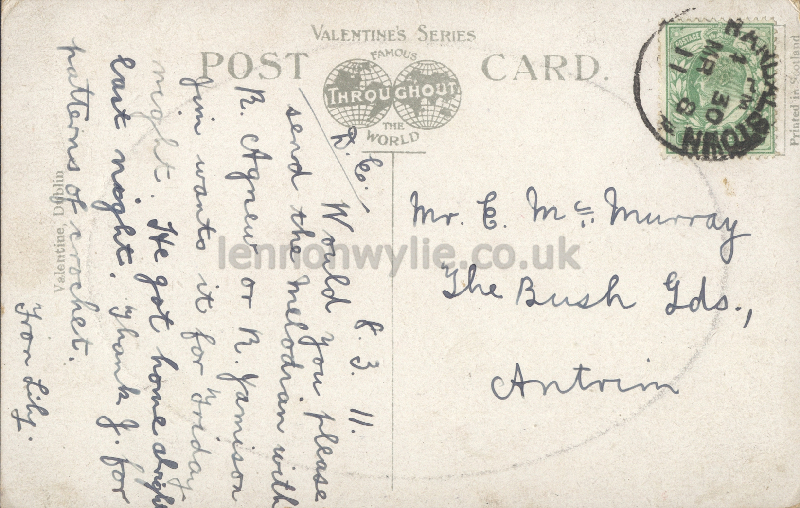 VALENTINE'S SERIES
POST CARD.
FAMOUS
THROUGHOUT
THE
WORLD
RANDALSTOWN
4 30 PM
MR 8
11
Printed in Scotland
Valentine, Dublin
8. 3. 11.
D. E. Would you please
send the melodian with
R. Agnew or R. Jamison
Jim wants it for Friday
night. He got home alright
last night. Thank J. for
patterns of crochet.
From Lily.
Mr. E. Mc. Murray
The Bush Gds.,
Antrim
lennonwylie.co.uk